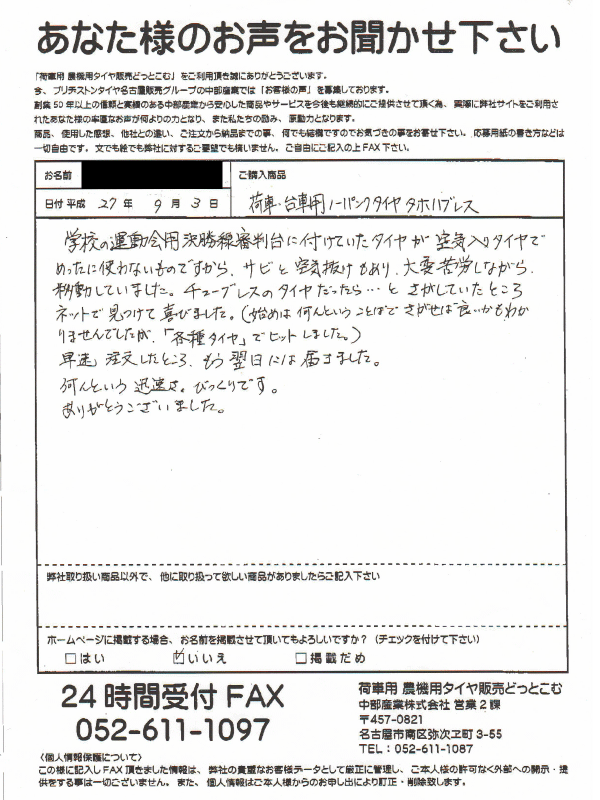 あなた様のお声をお聞かせ下さい
「荷車用 農機用タイヤ販売どっとこむ」をご利用頂き誠にありがとうございます。
今、ブリヂストンタイヤ名古屋販売グループの中部産業では「お客様の声」を募集しております。
創業50年以上の信頼と実績のある中部産業から安心した商品やサービスを今後も継続的にご提供させて頂く為、実際に弊社サイトをご利用さ
れたあなた様の率直なお声が何よりの力となり、また私たちの励み、原動力となります。
商品、使用した感想、他社との違い、ご注文から納品までの事、何でも結構ですのでお気づきの事をお寄せ下さい。応募用紙の書き方などは
一切自由です。文でも絵でも弊社に対するご要望でも構いません。ご自由にご記入の上FAX下さい。
お名前
ご購入商品
日付 平成 27 年 9 月 3 日
荷車・台車用ノーパンクタイヤ タホハブレス
学校の運動会用決勝線審判台に付けていたタイヤが空気入りタイヤで
めったに使わないものですから、サビと空気抜けもあり、大変苦労しながら、
移動していました。チューブレスのタイヤだったら…とさがしていたところ
ネットで見つけて喜びました。(始めは何んということばでさがせば良いかもわか
りませんでしたが、「各種タイヤ」でヒットしました。)
早速 注文したところ、もう翌日には届きました。
何んという迅速さ。びっくりです。
ありがとうございました。
弊社取り扱い商品以外で、他に取り扱って欲しい商品がありましたらご記入下さい
ホームページに掲載する場合、お名前を掲載させて頂いてもよろしいですか?(チェックを付けて下さい)
□はい ☑いいえ □掲載だめ
24時間受付FAX
052-611-1097
荷車用 農機用タイヤ販売どっとこむ
中部産業株式会社 営業2課
〒457-0821
名古屋市南区弥次ヱ町3-55
TEL:052-611-1087
〈個人情報保護について〉
この様に記入しFAX頂きました情報は、弊社の貴重なお客様データとして厳正に管理し、ご本人様の許可なく外部への開示・提
供をする事は一切ございません。また、個人情報はご本人様からのお申し出により訂正・削除致します。